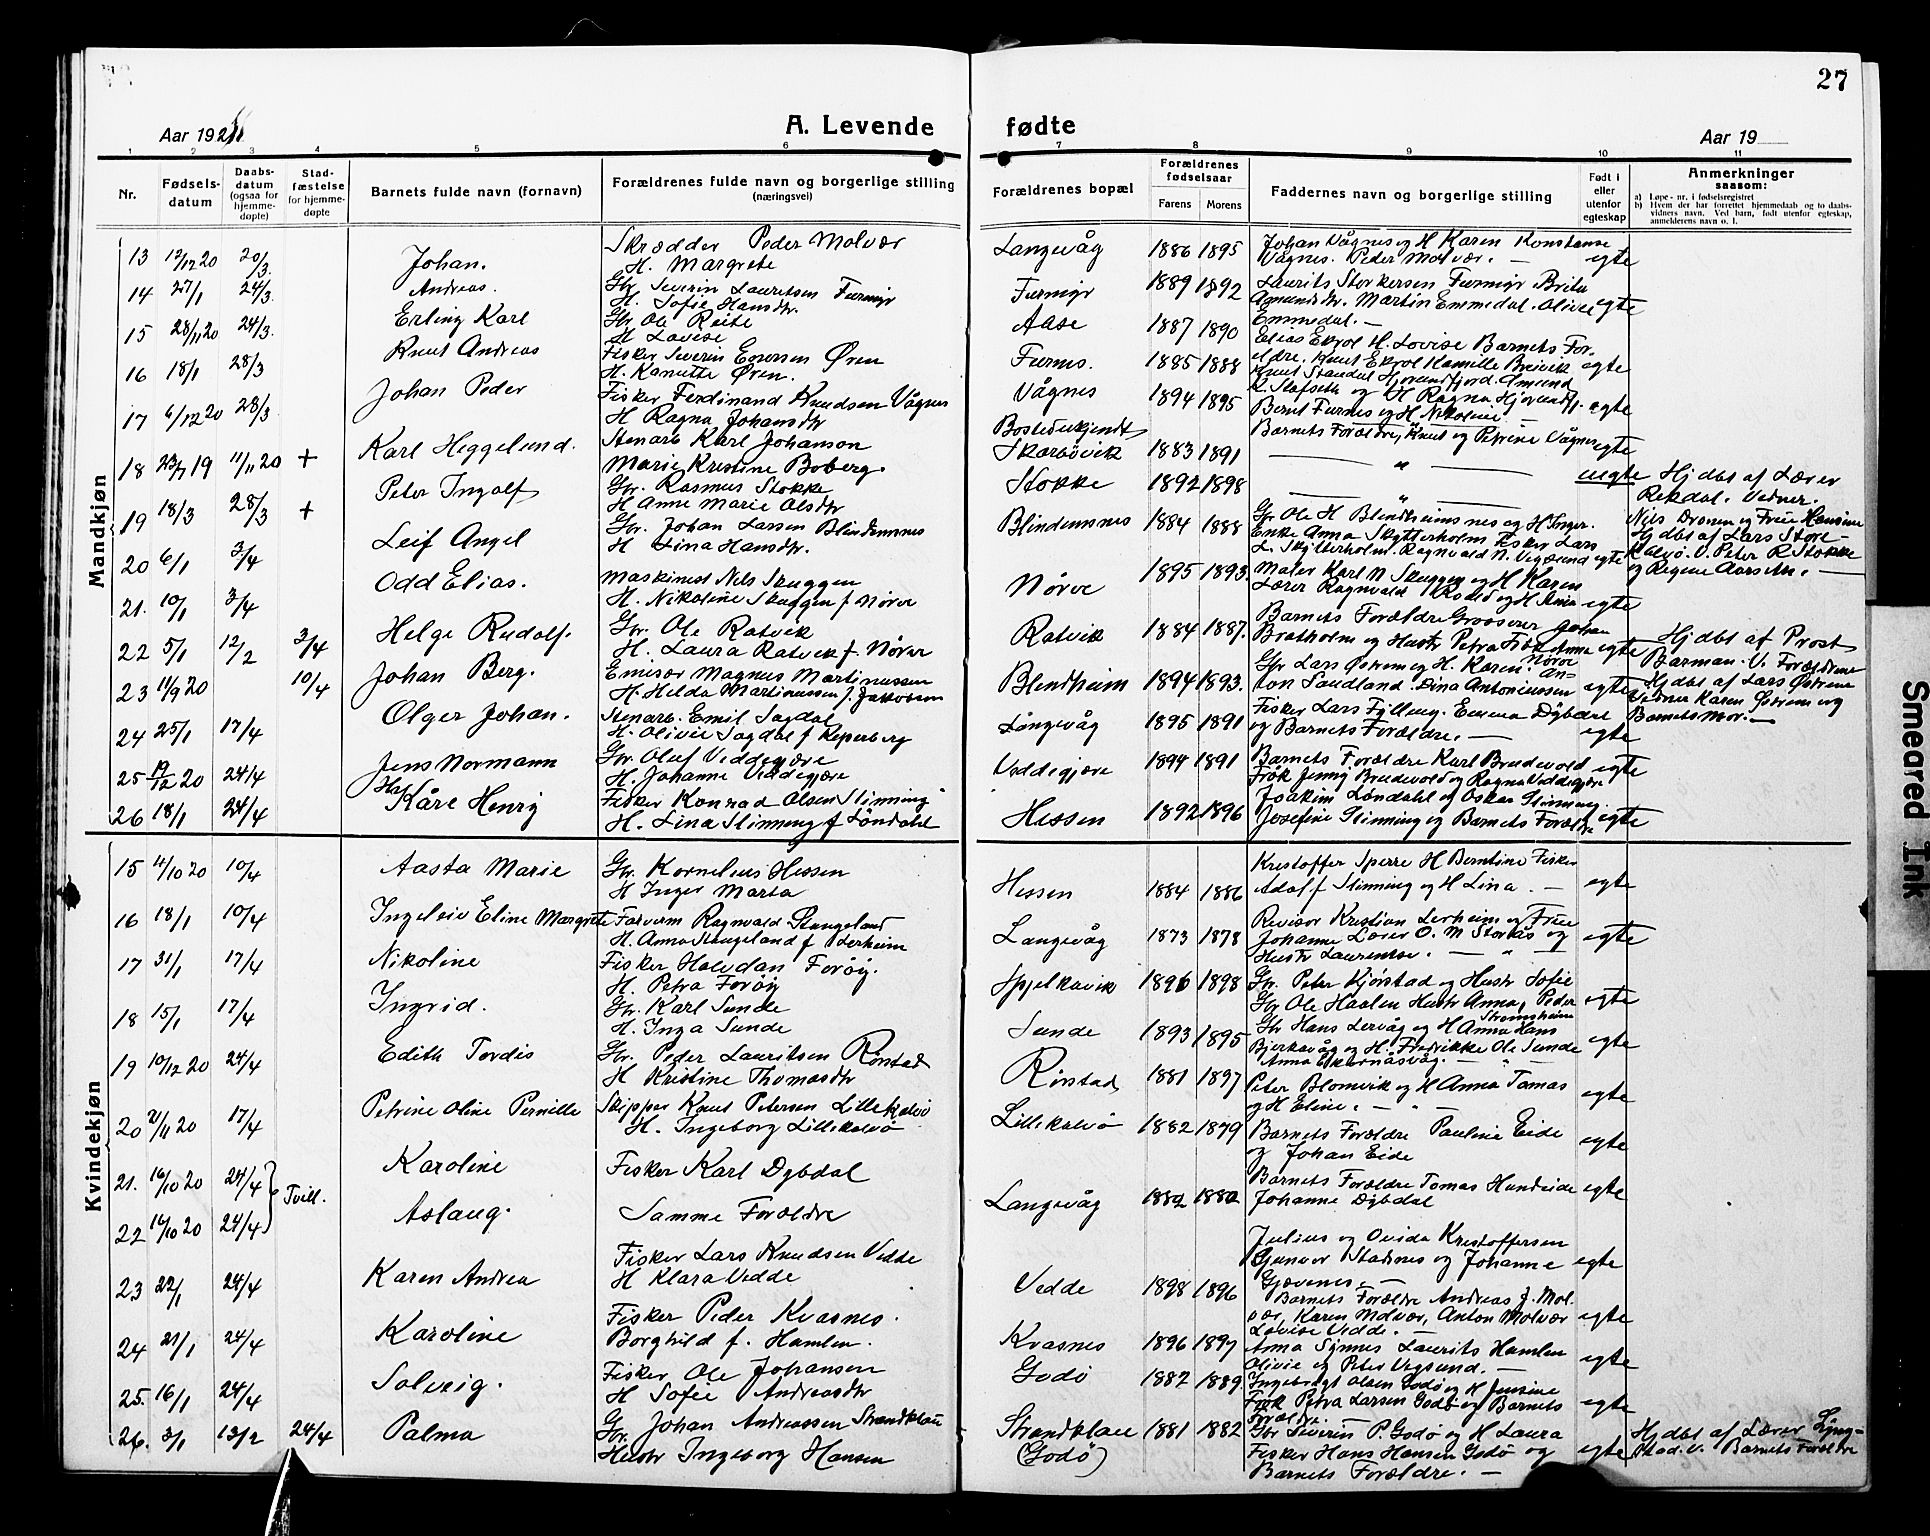 27
Aar 1921
A. Levende
fødte
Aar 19
1 2 3 4 5 6 7 8 9 10 11
Nr.
Fødsels-
datum
Daabs-
datum
(ogsaa for
hjemme-
døpte)
Stad-
fæstelse
for hjemme-
døpte
Barnets fulde navn (fornavn)
Forældrenes fulde navn og borgerlige stilling
(næringsvei)
Forældrenes bopæl
Forældrenes
fødselsaar
Farens Morens
Faddernes navn og borgerlige stilling
Født i
eller
utenfor
egteskap
Anmerkninger
saasom:
a) Løpe-nr. i fødselsregistret
b) Hvem der har forrettet hjemmedaab og to daabs-
vidners navn. Ved barn, født utenfor egteskap,
anmelderens navn o. l.
Mandkjøn
13 12/12 20 20/3. Johan. Skrædder Peder Molvær
H. Margrete
Langevåg 1886 1895 Johan Vågnes og H Karen Konstanse
Vågnes. Peder Molvær. — egte
14 27/1 24/3. Andreas. Gbr Severin Lauritsen Furmyr
H. Sofie Hansdtr.
Furmyr 1889 1892 Laurits Storkersen Furmyr Brite
Amundsdtr. Martin Emmedal. Olive egte
Emmedal. —
15 28/11 20 24/3. Erling Karl Gbr. Ole Reite
H Lovise
Aase 1887 1890 Elias Ekrol H. Lovise Barnets For-
ældre. Knut Ekrol Kamille Breivik egte
16 18/1 28/3 Knut Andreas Fisker Severin Ensersen Øren
H. Kanutte Øren.
Furnes. 1885 1888 Knut Standal Hjørundfjord. Amund
K. Slafseth og H Ragna Hjørundfj.
17 6/12 20 28/3. Johan Peder Fisker Ferdinand Knudsen Vågnes
H Ragna Johansdtr
Vågnes 1894 1895 Bernt Furnes og H. Nikoline egte
Barnets Forældre, Knut og Petrine Vågnes egte
18 23/7 19 11/11 20 + Karl Heggelund. Stenarb Karl Johanson
Marie Kristine Boberg.
Bosted ukjendt
Skarbøvik 1883 1891 — " — uegte Hj dbt af Lærer
Rekdal. Vidner.
19 18/3 28/3 + Peter Ingolf Gbr. Rasmus Stokke
H Anne Marie Olsdtr
Stokke 1892 1898 — " — Nils Dronen og Frue Hansine
Hj dbt af Lars Store-
Kalvø. V. Peter R. Stokke
og Regine Aarseth. —
20 6/1 3/4 Leif Angel Gbr. Johan Larsen Blindemnes
H Lina Hansdtr.
Blindemnes 1884 1888 Gbr Ole H Blindheimsnes og H Inger.
Enke Anna Skytterholm Fisker Lars
L. Skytterholm. Ragnvald N. Vegsund egte
21. 10/1 3/4 Odd Elias. Maskinist Nils Skuggen
H. Nikoline Skuggen f Nørve
Nørve 1895 1893. Maler Karl N Skuggen og H Karen
Lærer Ragnvald og H Anna egte
22 5/1 12/2 3/4 Helge Rudolf. Gbr. Ole Ratvik
H. Laura Ratvik f. Nørve
Ratvik 1884 1887. Barnets Forældre Grosserer Johan
Bratholm og Hustr Petra Frøk Anna egte
Nørve
Hj dbt af Prost
Barman. V. Forældrene
23 11/9 20 10/4 Johan Berg. Emisær Magnus Martinussen
H. Hilda Martinussen f. Jakobsen
Blindheim 1894 1893. Gbr Lars Østrem og H. Karen. An-
ton Sandland. Dina Antoniussen egte
Hj dbt af Lars Østrem
Vidner Karen Østrem og
Barnets Mor. —
24 25/1 17/4 Olger Johan. Stenarb. Emil Sagdal
H. Olivie Sagdal f Reperberg
Langevåg 1895 1891 Fisker Lars Fylling. Emma Dybdal
og Barnets Forældre. — egte
25 19/12 20 24/4 Jens Normann Gbr. Oluf Veddegjære
H. Johanne Veddegjære
Veddegjære 1894 1891 Barnets Forældre Karl Brudevold egte
Frøk Jenny Brudevold og Ragna Veddegjære
26 18/1 24/4 Kåre Henry Fisker Konrad Olsen Slinning
H. Lina Slinning f Løndahl
Hessen 1892 1896 Joakim Løndahl og Oskar Slinning.
Josefine Slinning og Barnets Forældre egte
Kvindekjøn
15 4/10 20 10/4 Aasta Marie Gbr. Kornelius Hessen
H Inger Marta
Hessen 1884 1886 Kristoffer Sperre H Berntine Fisker
Adolf Slinning og H Lina. — egte
16 18/1 10/4 Ingeleiv Eline Margrete Farverm Ragnvald Stangeland
H. Anna Stangeland f Lerheim
Langevåg 1873 1878 Revisor Kristian Lerheim og Frue
Johanne Lærer O. M Storkås og egte
Hustr Laurentse. — " —
17 31/1 17/4 Nikoline Fisker Halvdan Forøy.
H. Petra Forøy
Spjelkavik 1896 1898 Gbr. Peter Kjørstad og Hustr Sofie
Gbr Ole Haalen Hustr Anna, Peder egte
Strømsheim
18 15/1 17/4 Ingrid. Gbr. Karl Sunde
H. Inga Sunde
Sunde 1893 1895 Gbr Hans Lervåg og H Anna Hans
Bjerkavåg og H. Fredrikke Ole Sunde egte
Anna Ekornåsvåg. — " —
19 10/12 20 24/4 Edith Tordis Gbr. Peder Lauritsen Rørstad
H Kristine Thomasdtr
Rørstad 1881 1897 Peter Blomvik og H Anna Tomas
og H Eline. — " — egte
20 2/11 20 17/4 Petrine Oline Pernille Skipper Knut Petersen Lillekalvø
H. Ingeborg Lillekalvø
Lillekalvø 1882 1879 Barnets Forældre Pauline Eide
og Johan Eide egte
21. 16/10 20 24/4 Tvill. Karoline Fisker Karl Dybdal
Langevåg 1882 1882 Barnets Forældre Tomas Hundeide egte
Johanne Dybdal
22 16/10 20 24/4 Aslaug. Samme Forældre
23 22/1 24/4 Karen Andrea Fisker Lars Knudsen Vedde
H Klara Vedde
Vedde 1898 1896 Julius og Ovida Kristoffersen
Gunvor Stadsnes og Johanne egte
Gjævenes. —
24 21/1 24/4 Karoline Fisker Peder Kvasnes.
Borghild f. Hamlen.
Kvasnes 1896 1897 Barnets Forældre Andreas J. Mol-
vær, Karen Molvær, Anton Molvær egte
Lovise Vedde. —
25. 16/1 24/4 Solveig. Fisker Ole Johansen
H Sofie Andreasdtr
Godø 1882 1889. Anna Synnes Laurits Hamlen
Olivie og Peter Vegsund. — egte
Ingebrigt Olsen Godø og H Jensine
Frøk Petra Larsen Godø og Barnets egte
Forældre. —
26. 3/1 13/2 24/4 Palma Gbr. Johan Andreassen Strandklau
Hustr Ingeborg Hansen
Strandklau
(Godø) 1881 1882 Gbr Severin P. Godø og H Laura
Fisker Hans Hansen Godø og egte
Barnets Forældre. —
Hj dbt af Lærer Ljøng-
stad. V. Barnets Forældre
Smeared Ink